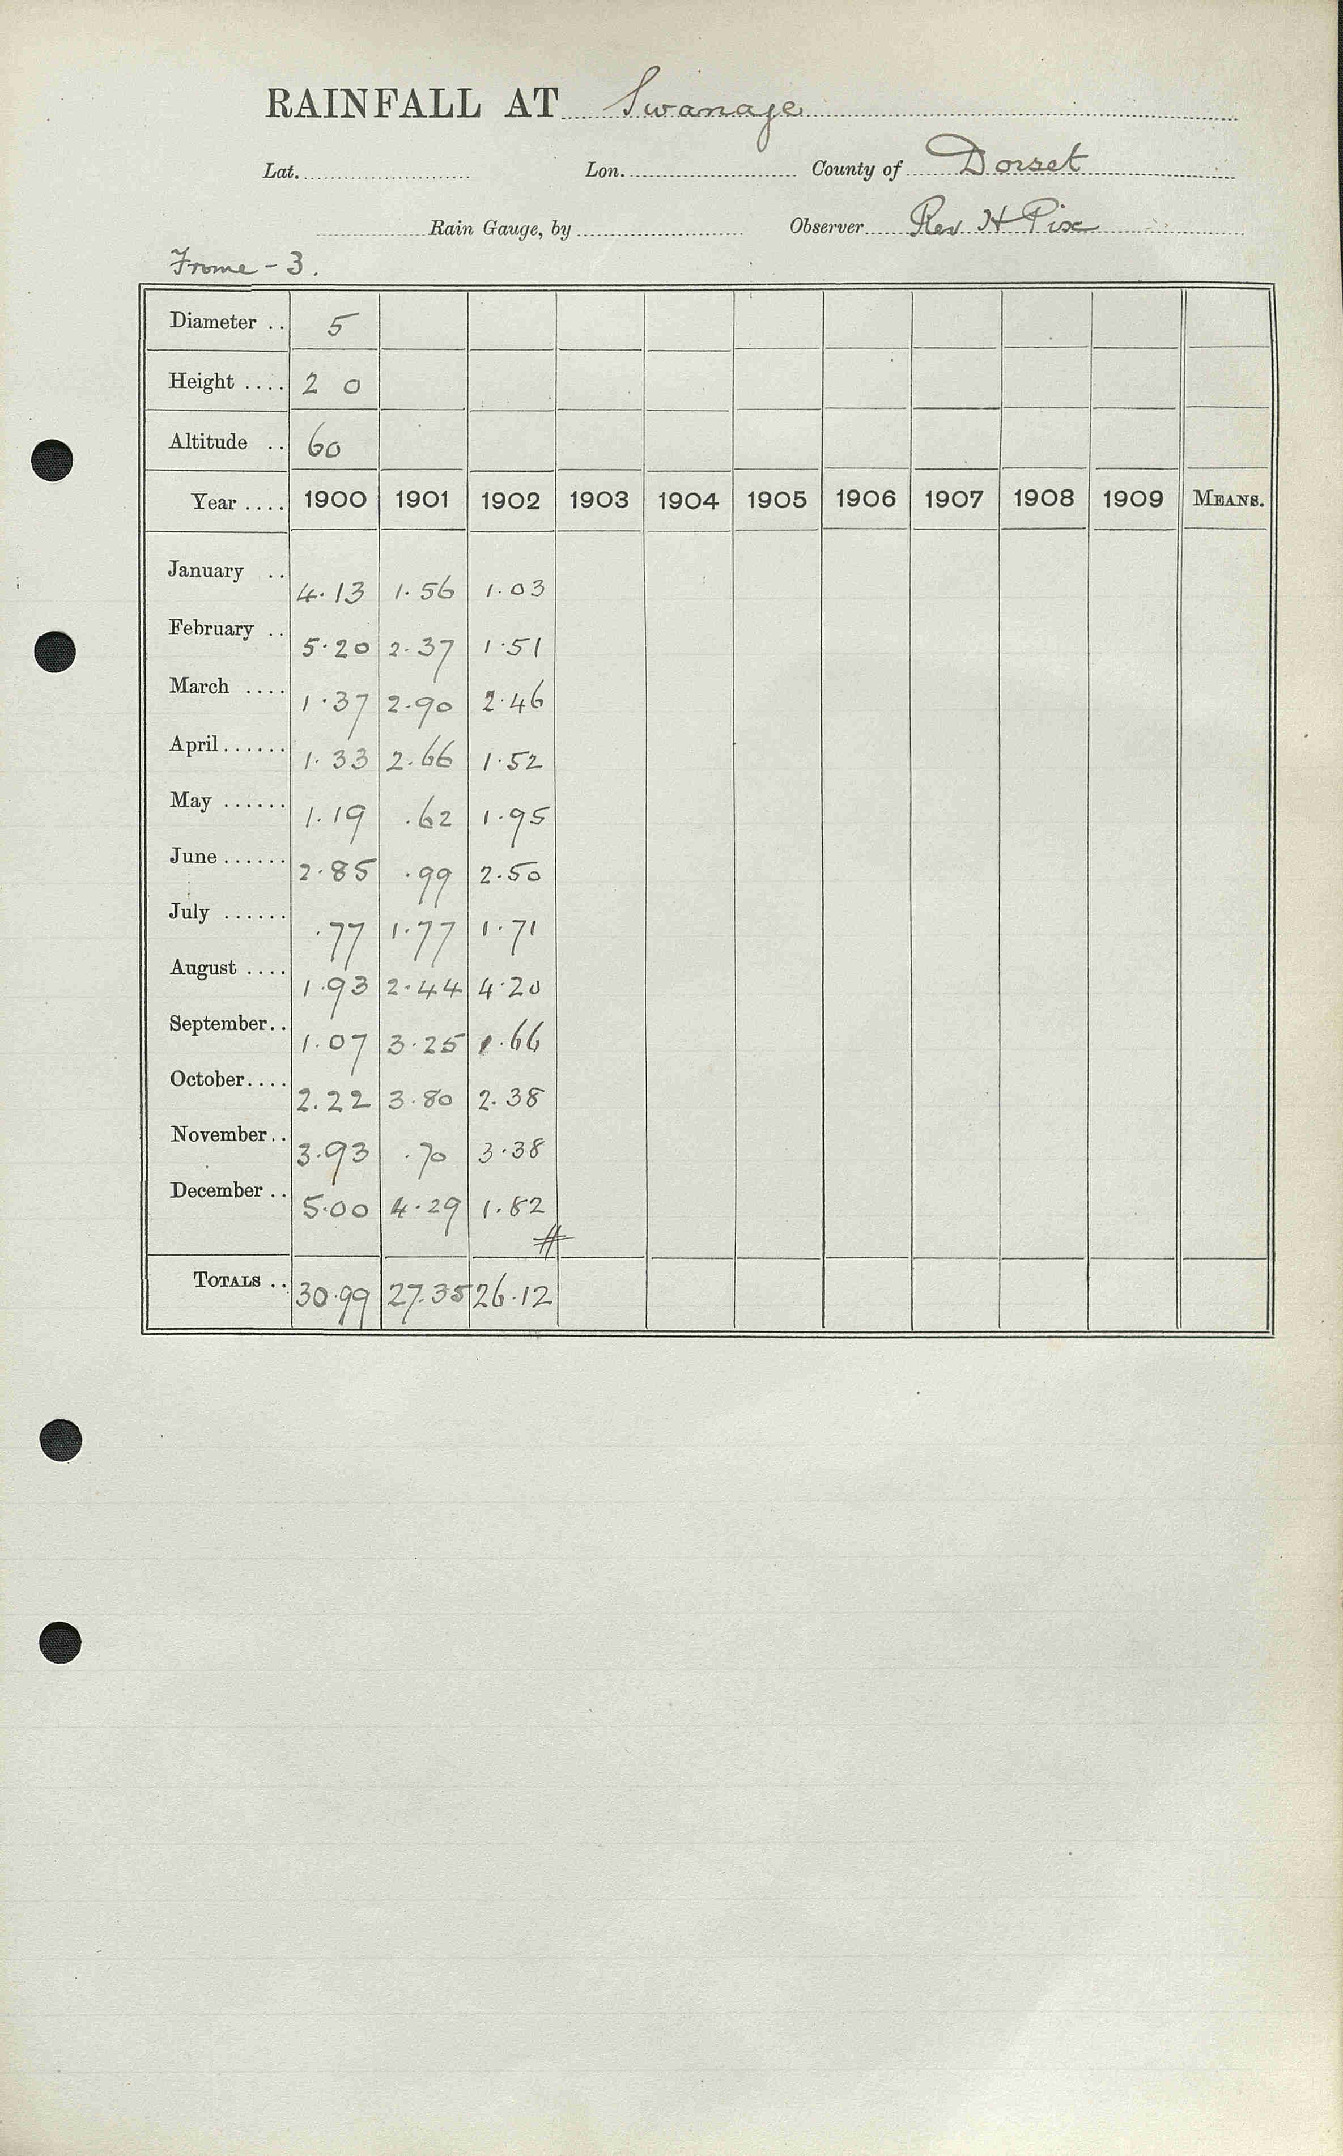 RAINFALL AT Swanage
Lat. Lon. County of Dorset
Rain Gauge, by Observer Rev H Pix
Frome - 3.
Diameter .. 5
Height .... 2 0
Altitude .. 60
Year .... 1900 1901 1902 1903 1904 1905 1906 1907 1908 1909 MEANS.
January .. 4.13 1.56 1.03
February .. 5.20 2.37 1.51
March .... 1.37 2.90 2.46
April ...... 1.33 2.66 1.52
May ...... 1.19 .62 1.95
June ...... 2.85 .99 2.50
July ...... .77 1.77 1.71
August .... 1.93 2.44 4.20
September.. 1.07 3.25 1.66
October.... 2.22 3.80 2.38
November.. 3.93 .70 3.38
December .. 5.00 4.29 1.82
#
TOTALS .. 30.99 27.35 26.12